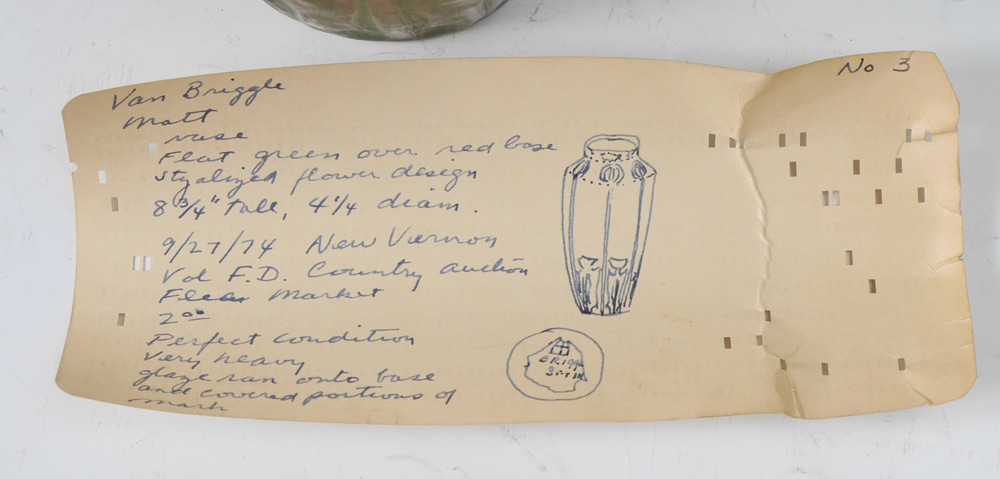 No 3
Van Briggle
Matt
vase
Flat green over red base
Stylalized flower design
8 3/4" tall, 4 1/4 diam.
9/27/74 New Vernon
Vol F.D. Country auction
Flea Market
2⁰⁰
Perfect condition
Very heavy
glaze ran onto base
and covered portions of
mark